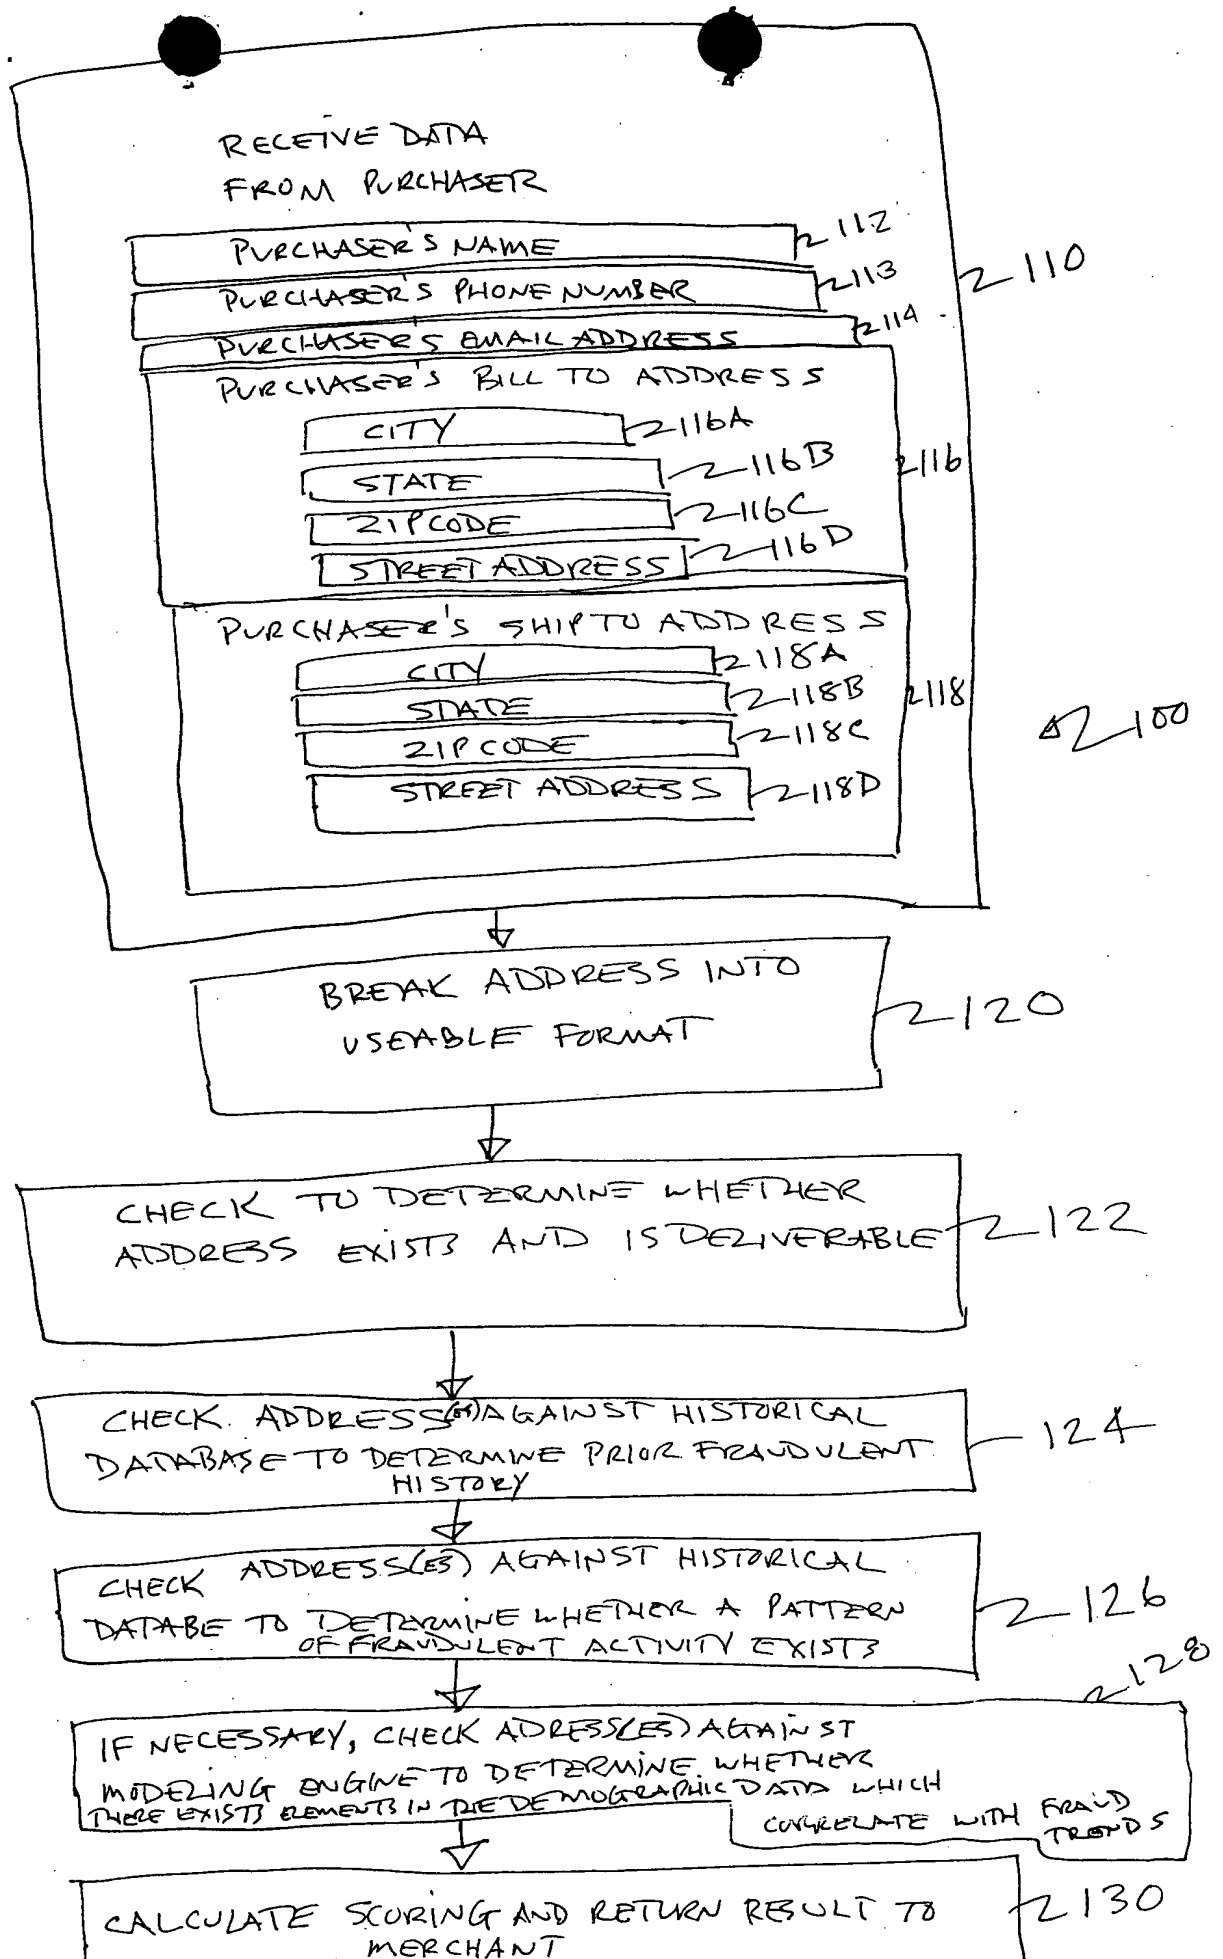 RECEIVE DATA
FROM PURCHASER
PURCHASER'S NAME 112
PURCHASER'S PHONE NUMBER 113
110
PURCHASER'S EMAIL ADDRESS 114
PURCHASER'S BILL TO ADDRESS
CITY 116A
STATE 116B
116
ZIPCODE 116C
STREET ADDRESS 116D
PURCHASER'S SHIP TO ADDRESS
CITY 118A
STATE 118B
118
ZIPCODE 118C
100
STREET ADDRESS 118D
BREAK ADDRESS INTO
USEABLE FORMAT
120
CHECK TO DETERMINE WHETHER
ADDRESS EXISTS AND IS DELIVERABLE
122
CHECK ADDRESS(ES) AGAINST HISTORICAL
DATABASE TO DETERMINE PRIOR FRAUDULENT
HISTORY
124
CHECK ADDRESS(ES) AGAINST HISTORICAL
DATABE TO DETERMINE WHETHER A PATTERN
OF FRAUDULENT ACTIVITY EXISTS
126
128
IF NECESSARY, CHECK ADRESS(ES) AGAINST
MODELING ENGINE TO DETERMINE WHETHER
THERE EXISTS ELEMENTS IN THE DEMOGRAPHIC DATA WHICH
CORRELATE WITH FRAUD
TRENDS
CALCULATE SCORING AND RETURN RESULT TO
MERCHANT
130